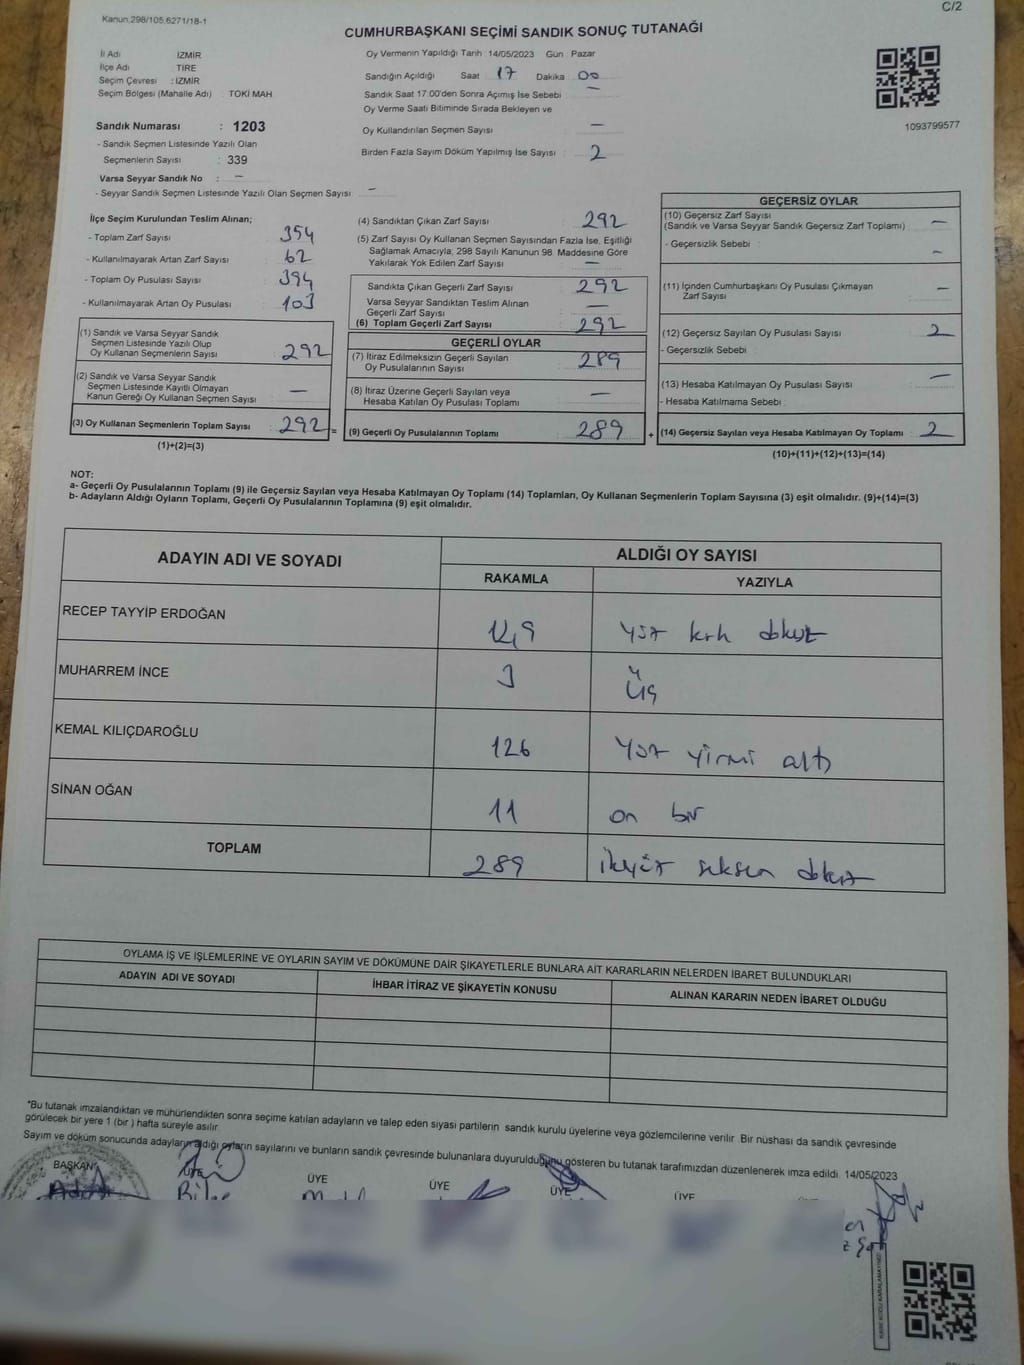 Kanun.298/105.6271/18-1
C/2
CUMHURBAŞKANI SEÇİMİ SANDIK SONUÇ TUTANAĞI
İl Adı : İZMİR
İlçe Adı : TİRE
Seçim Çevresi : İZMİR
Seçim Bölgesi (Mahalle Adı) : TOKİ MAH.
Oy Vermenin Yapıldığı Tarih : 14/05/2023 Gün : Pazar
Sandığın Açıldığı Saat : 17 Dakika : 00
Sandık Saat 17.00'den Sonra Açımış İse Sebebi : —
Oy Verme Saati Bitiminde Sırada Bekleyen ve
Oy Kullandırılan Seçmen Sayısı : —
Birden Fazla Sayım Döküm Yapılmış İse Sayısı : 2
1093799577
Sandık Numarası : 1203
- Sandık Seçmen Listesinde Yazılı Olan
Seçmenlerin Sayısı : 339
Varsa Seyyar Sandık No : —
- Seyyar Sandık Seçmen Listesinde Yazılı Olan Seçmen Sayısı : —
İlçe Seçim Kurulundan Teslim Alınan;
- Toplam Zarf Sayısı : 354
- Kullanılmayarak Artan Zarf Sayısı : 62
- Toplam Oy Pusulası Sayısı : 394
- Kullanılmayarak Artan Oy Pusulası : 103
(1) Sandık ve Varsa Seyyar Sandık
Seçmen Listesinde Yazılı Olup
Oy Kullanan Seçmenlerin Sayısı : 292
(2) Sandık ve Varsa Seyyar Sandık
Seçmen Listesinde Kayıtlı Olmayan
Kanun Gereği Oy Kullanan Seçmen Sayısı : —
(3) Oy Kullanan Seçmenlerin Toplam Sayısı : 292 =
(1)+(2)=(3)
(4) Sandıktan Çıkan Zarf Sayısı : 292
(5) Zarf Sayısı Oy Kullanan Seçmen Sayısından Fazla İse, Eşitliği
Sağlamak Amacıyla; 298 Sayılı Kanunun 98. Maddesine Göre
Yakılarak Yok Edilen Zarf Sayısı : —
Sandıkta Çıkan Geçerli Zarf Sayısı : 292
Varsa Seyyar Sandıktan Teslim Alınan
Geçerli Zarf Sayısı : —
(6) Toplam Geçerli Zarf Sayısı : 292
GEÇERLİ OYLAR
(7) İtiraz Edilmeksizin Geçerli Sayılan
Oy Pusulalarının Sayısı : 289
(8) İtiraz Üzerine Geçerli Sayılan veya
Hesaba Katılan Oy Pusulası Toplamı : —
(9) Geçerli Oy Pusulalarının Toplamı : 289 +
GEÇERSİZ OYLAR
(10) Geçersiz Zarf Sayısı : —
(Sandık ve Varsa Seyyar Sandık Geçersiz Zarf Toplamı)
- Geçersizlik Sebebi : —
(11) İçinden Cumhurbaşkanı Oy Pusulası Çıkmayan
Zarf Sayısı : —
(12) Geçersiz Sayılan Oy Pusulası Sayısı : 2
- Geçersizlik Sebebi :
(13) Hesaba Katılmayan Oy Pusulası Sayısı : —
- Hesaba Katılmama Sebebi :
(14) Geçersiz Sayılan veya Hesaba Katılmayan Oy Toplamı : 2
(10)+(11)+(12)+(13)=(14)
NOT:
a- Geçerli Oy Pusulalarının Toplamı (9) ile Geçersiz Sayılan veya Hesaba Katılmayan Oy Toplamı (14) Toplamları, Oy Kullanan Seçmenlerin Toplam Sayısına (3) eşit olmalıdır. (9)+(14)=(3)
b- Adayların Aldığı Oyların Toplamı, Geçerli Oy Pusulalarının Toplamına (9) eşit olmalıdır.
ADAYIN ADI VE SOYADI ALDIĞI OY SAYISI
RAKAMLA YAZIYLA
RECEP TAYYİP ERDOĞAN 149 yüz kırk dokuz
MUHARREM İNCE 3 üç
KEMAL KILIÇDAROĞLU 126 yüz yirmi altı
SİNAN OĞAN 11 on bir
TOPLAM 289 ikiyüz seksen dokuz
OYLAMA İŞ VE İŞLEMLERİNE VE OYLARIN SAYIM VE DÖKÜMÜNE DAİR ŞİKAYETLERLE BUNLARA AİT KARARLARIN NELERDEN İBARET BULUNDUKLARI
ADAYIN ADI VE SOYADI İHBAR İTİRAZ VE ŞİKAYETİN KONUSU ALINAN KARARIN NEDEN İBARET OLDUĞU
*Bu tutanak imzalandıktan ve mühürlendikten sonra seçime katılan adayların ve talep eden siyasi partilerin sandık kurulu üyelerine veya gözlemcilerine verilir. Bir nüshası da sandık çevresinde
görülecek bir yere 1 (bir ) hafta süreyle asılır.
Sayım ve döküm sonucunda adayların aldığı oyların sayılarını ve bunların sandık çevresinde bulunanlara duyurulduğunu gösteren bu tutanak tarafımızdan düzenlenerek imza edildi. 14/05/2023
BAŞKAN ÜYE ÜYE ÜYE ÜYE ÜYE